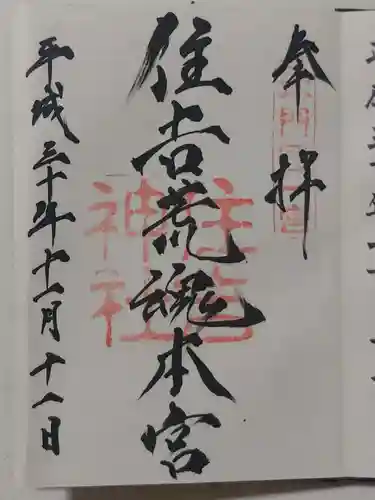 奉拝
住吉荒魂本宮
住吉神社
平成三十年十一月十一日